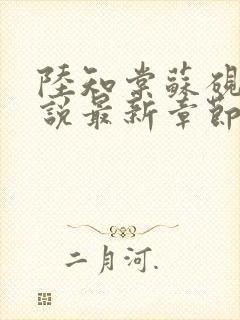 陸知棠蘇硯
說最新章節
二月河.